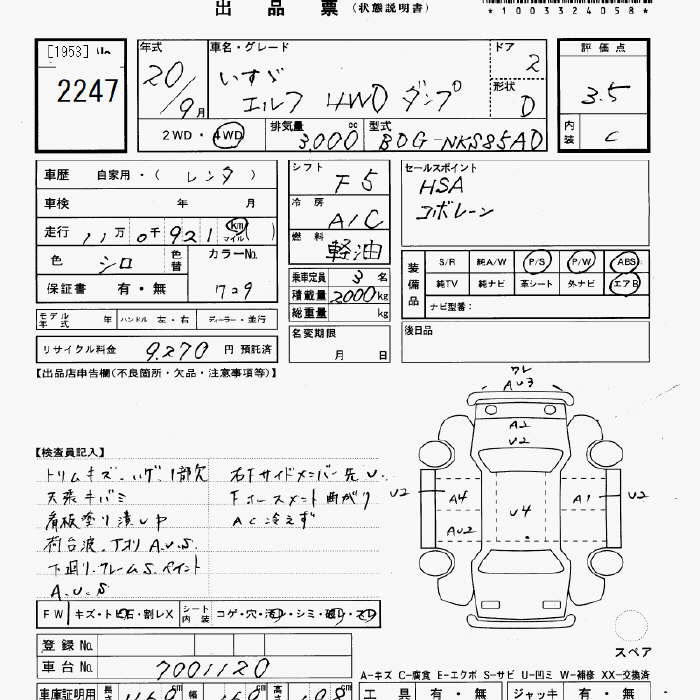 出 品 票 (状態説明書)
*1003324058*
[1953] いすゞ
2247
年式
20/9月
車名・グレード
いすゞ
エルフ 4WD ダンプ
ドア
2
形状
D
評価点
3.5
内装
C
2WD・4WD
排気量
3,000 cc
型式
BDG-NKS85AD
車歴 自家用・( レンタ )
車検 年 月
走行 11万0千921 km マイル
色 シロ 色替
カラーNo.
729
保証書 有・無
シフト
F5
冷房
A/C
燃料
軽油
乗車定員 3名
積載量 2000kg
総重量 kg
セールスポイント
HSA
コボレーン
装備品
S/R 純A/W P/S P/W ABS
純TV 純ナビ 革シート 外ナビ エアB
ナビ型番:
モデル年式 年 ハンドル 左・右 ディーラー・並行
リサイクル料金 9,270 円 預託済
名変期限
月 日
後日品
【出品店申告欄(不良箇所・欠品・注意事項等)】
ワレ
AU3
A2
U2
U2 A4 U4 A1 U2
AU2
スペア
【検査員記入】
トリムキズ、コゲ、1部欠
天張キバミ
看板塗り潰し中
荷台波、アオリA.U.S.
下廻り、フレームS.ペイント
A.U.S
右Fサイドメンバー先U.
Fホースメント曲がり
AC冷えず
FW キズ・トビ石・割レX
シート内装 コゲ・穴・汚レ・シミ・破レ・スレ
登録No.
車台No. 7001120
車庫証明用 長さ 幅 cm
A-キズ C-腐食 E-エクボ S-サビ U-凹ミ W-補修 XX-交換済
工具 有・無 ジャッキ 有・無